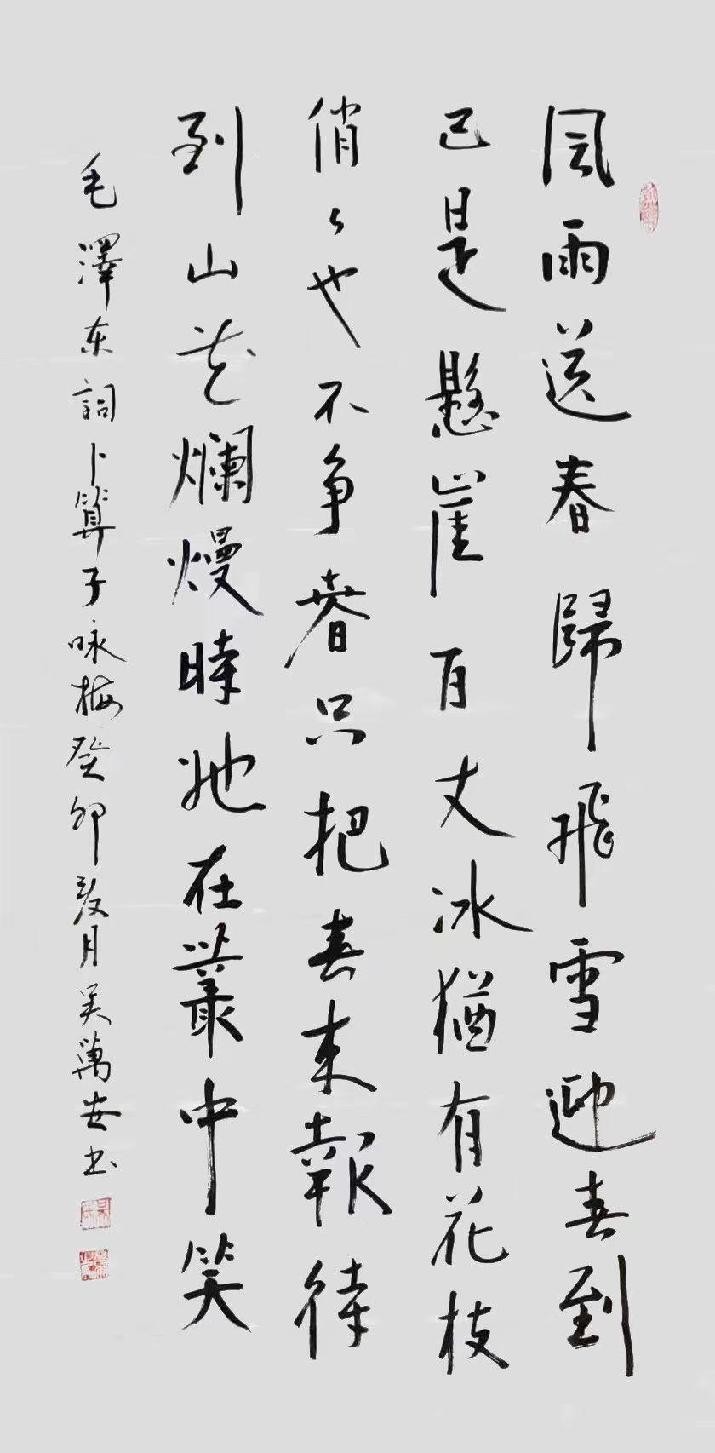 風雨送春歸飛雪迎春到
已是懸崖百丈冰猶有花枝
俏々也不争春只把春來報待
到山花爛熳時她在叢中笑
毛澤东詞卜算子咏梅癸卯後月吴萬安书